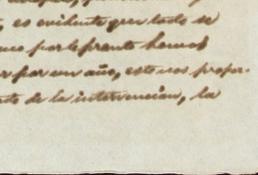 , es evidente que todo se
por lo pronto hemos
r por un año, esto nos propor-
to de la intervencion, la